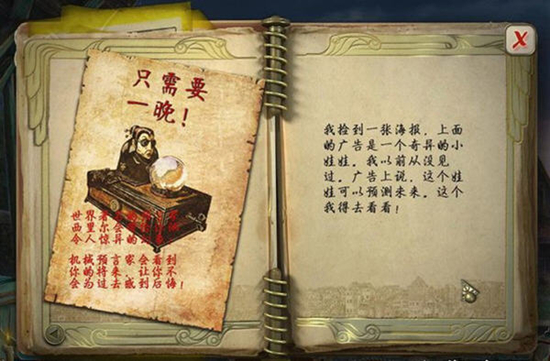 只需要
一晚！
世界著
西里尔会
令人惊异的
机械预言家会看到
你的将来，让你
会为过去感到后悔！
我捡到一张海报，上面
的广告是一个奇异的小
娃娃。我以前从没见
过。广告上说，这个娃
娃可以预测未来。这个
我得去看看！
X